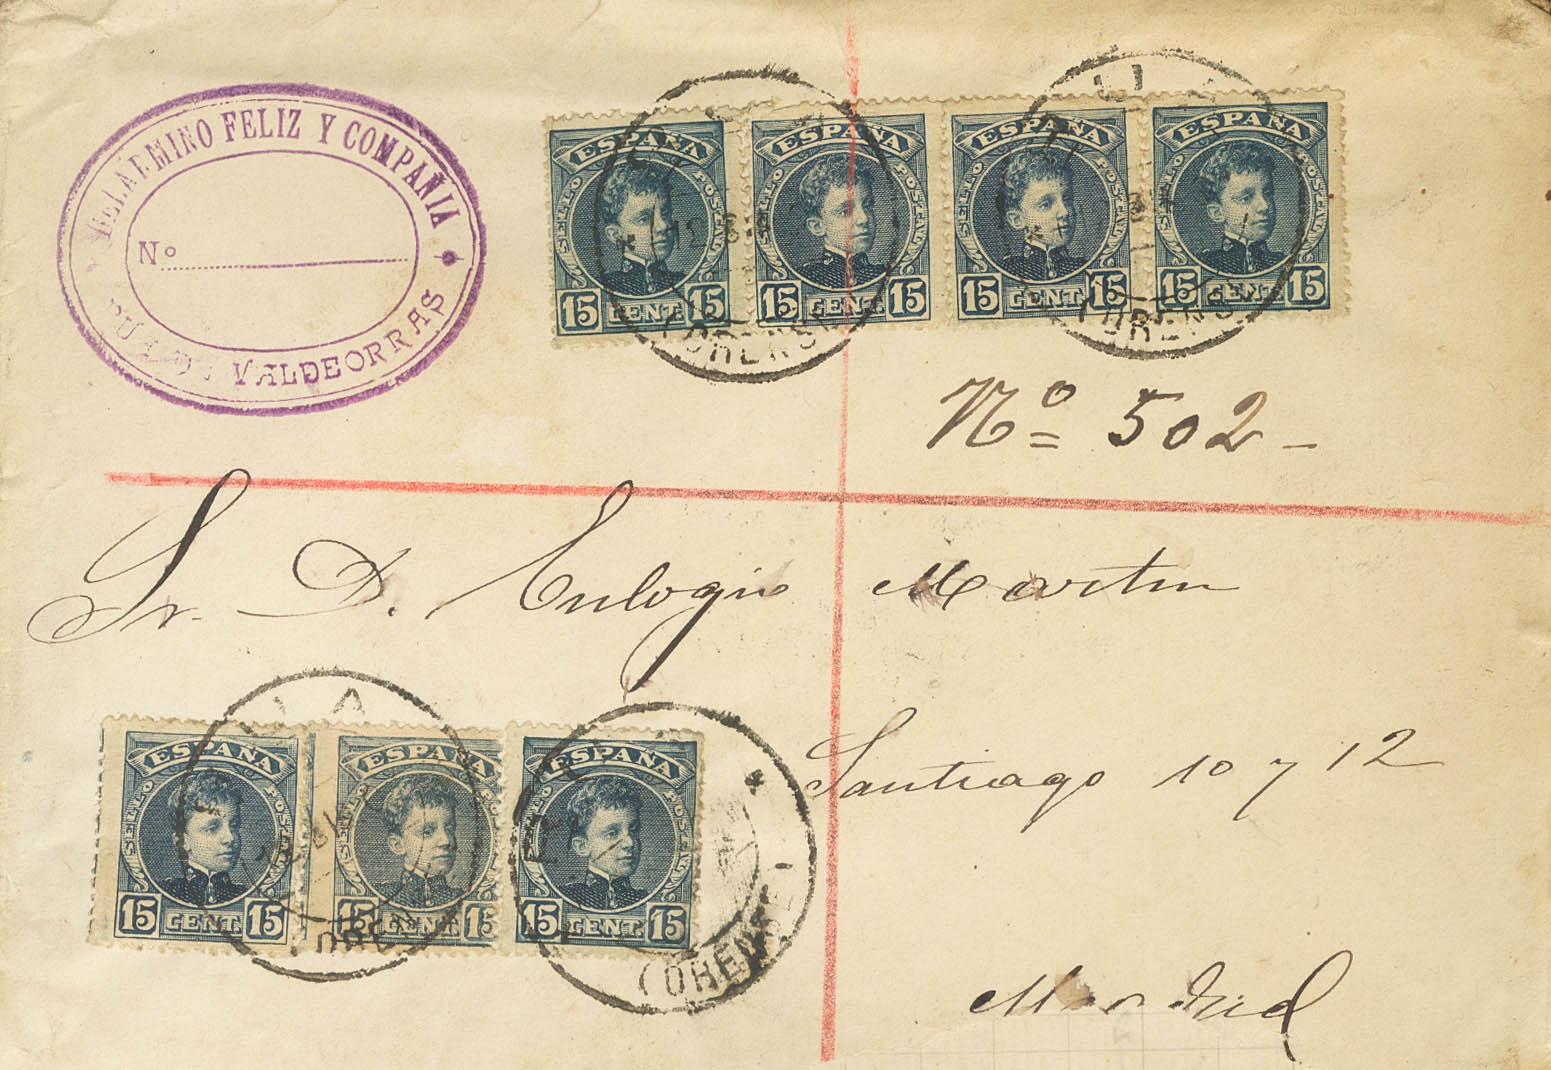 FELIZ Y COMPAÑIA
Nº
VALDEORRAS
ESPAÑA ESPAÑA ESPAÑA ESPAÑA
SELLO POSTAL SELLO POSTAL SELLO POSTAL SELLO POSTAL
15 CENT. 15 15 CENT. 15 15 CENT. 15 15 CENT. 15
(ORENSE (ORENSE
Nº 502
Sr. D. Eulogio Martin
Santiago 10 y 12
Madrid
ESPAÑA ESPAÑA ESPAÑA
SELLO POSTAL SELLO POSTAL SELLO POSTAL
15 CENT. 15 15 CENT. 15 15 CENT. 15
(ORENSE)